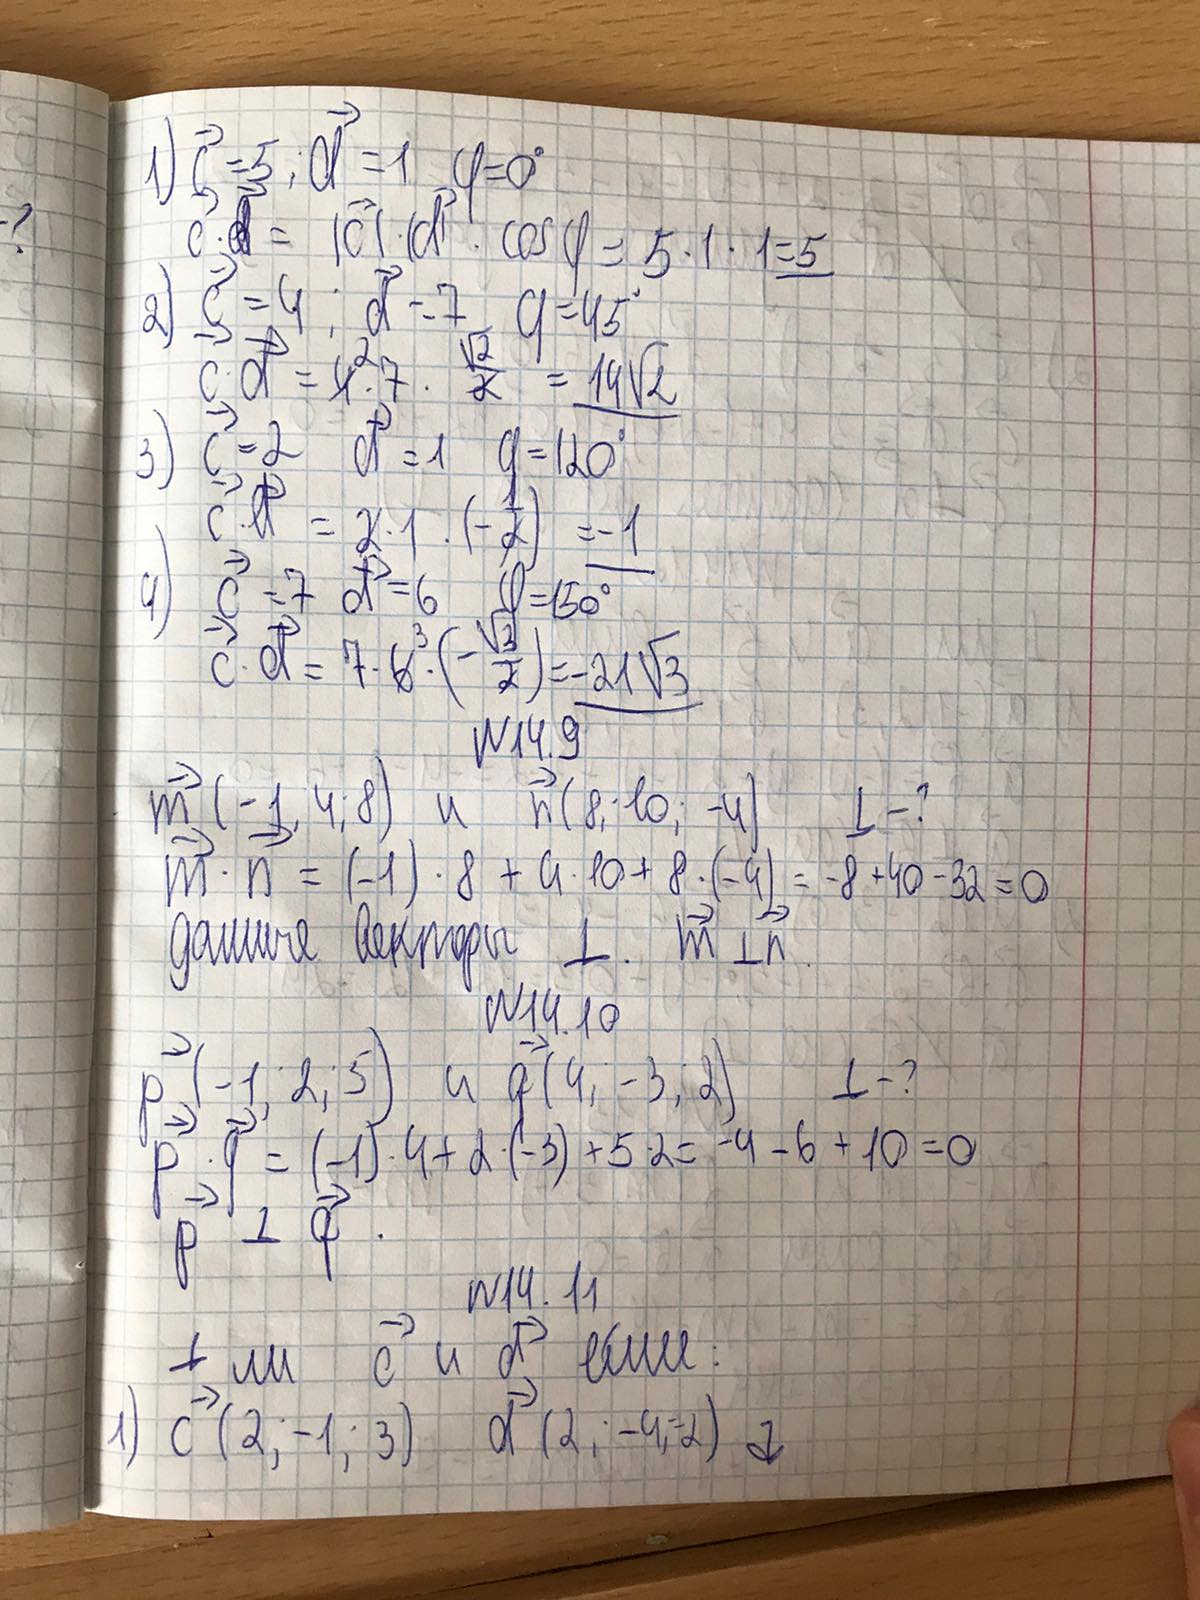 -?
1) c⃗ = 5 ; d⃗ = 1 φ = 0°
c⃗ · d⃗ = |c⃗| · |d⃗| · cos φ = 5 · 1 · 1 = 5
2) c⃗ = 4 ; d⃗ = 7 φ = 45°
c⃗ · d⃗ = 4² · 7 · √2/2 = 14√2
3) c⃗ = 2 d⃗ = 1 φ = 120°
c⃗ · d⃗ = 2 · 1 · (-1/2) = -1
4) c⃗ = 7 d⃗ = 6 φ = 150°
c⃗ · d⃗ = 7 · 6³ · (-√3/2) = -21√3
N14.9
m⃗ (-1; 4; 8) и n⃗ (8; 10; -4) ⊥ -?
m⃗ · n⃗ = (-1) · 8 + 4 · 10 + 8 · (-4) = -8 + 40 - 32 = 0
данные векторы ⊥. m⃗ ⊥ n⃗.
N14.10
p⃗ (-1; 2; 5) и q⃗ (4; -3; 2) ⊥ -?
p⃗ · q⃗ = (-1) · 4 + 2 · (-3) + 5 · 2 = -4 - 6 + 10 = 0
p⃗ ⊥ q⃗.
N14.11
⊥ ли c⃗ и d⃗ если:
1) c⃗ (2; -1; 3) d⃗ (2; -4; -2) ↓